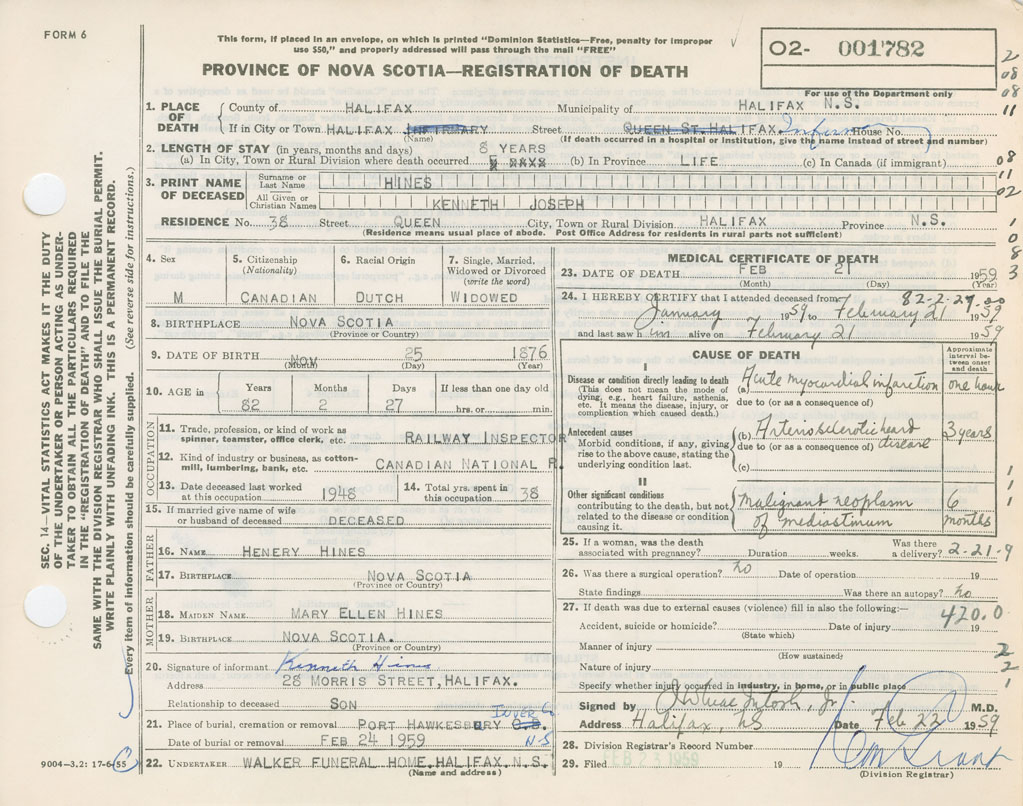 FORM 6
This form, if placed in an envelope, on which is printed "Dominion Statistics—Free, penalty for improper
use $50," and properly addressed will pass through the mail "FREE"
PROVINCE OF NOVA SCOTIA—REGISTRATION OF DEATH
O2- 001782
For use of the Department only
1. PLACE OF DEATH { County of HALIFAX Municipality of HALIFAX N.S.
If in City or Town HALIFAX INFIRMARY Street QUEEN ST. HALIFAX. House No.
(Name) (If death occurred in a hospital or institution, give the name instead of street and number)
2. LENGTH OF STAY (in years, months and days) 8 YEARS
(a) In City, Town or Rural Division where death occurred (b) In Province LIFE (c) In Canada (if immigrant)
3. PRINT NAME OF DECEASED { Surname or Last Name HINES
All Given or Christian Names KENNETH JOSEPH
RESIDENCE No. 38 Street QUEEN City, Town or Rural Division HALIFAX Province N.S.
(Residence means usual place of abode. Post Office Address for residents in rural parts not sufficient)
4. Sex M
5. Citizenship (Nationality) CANADIAN
6. Racial Origin DUTCH
7. Single, Married, Widowed or Divorced (write the word) WIDOWED
8. BIRTHPLACE NOVA SCOTIA
(Province or Country)
9. DATE OF BIRTH NOV 25 1876
(Month) (Day) (Year)
10. AGE in Years Months Days If less than one day old
82 2 27 hrs. or min.
OCCUPATION
11. Trade, profession, or kind of work as
spinner, teamster, office clerk, etc. RAILWAY INSPECTOR
12. Kind of industry or business, as cotton-
mill, lumbering, bank, etc. CANADIAN NATIONAL R.
13. Date deceased last worked
at this occupation 1948
14. Total yrs. spent in
this occupation 38
15. If married give name of wife
or husband of deceased DECEASED
FATHER
16. NAME HENERY HINES
17. BIRTHPLACE NOVA SCOTIA
(Province or Country)
MOTHER
18. MAIDEN NAME MARY ELLEN HINES
19. BIRTHPLACE NOVA SCOTIA.
(Province or Country)
20. Signature of informant Kenneth Hines
Address 28 MORRIS STREET, HALIFAX.
Relationship to deceased SON
21. Place of burial, cremation or removal PORT HAWKESBURY
N-S
Date of burial or removal FEB 24 1959
22. UNDERTAKER WALKER FUNERAL HOME. HALIFAX. N.S.
(Name and address)
MEDICAL CERTIFICATE OF DEATH
23. DATE OF DEATH FEB 21 1959
(Month) (Day)
82-2-27-00
24. I HEREBY CERTIFY that I attended deceased from
January 1959 to February 21 1959
and last saw him alive on February 21 1959
CAUSE OF DEATH
Approximate interval between onset and death
I
Disease or condition directly leading to death
(This does not mean the mode of
dying, e.g., heart failure, asthenia,
etc. It means the disease, injury, or
complication which caused death.)
(a) Acute myocardial infarction one hour
due to (or as a consequence of)
Antecedent causes
Morbid conditions, if any, giving
rise to the above cause, stating the
underlying condition last.
(b) Arteriosclerotic heart disease 3 years
due to (or as a consequence of)
(c)
II
Other significant conditions
contributing to the death, but not
related to the disease or condition
causing it.
Malignant neoplasm
of mediastinum
6 months
25. If a woman, was the death
associated with pregnancy? Duration weeks. Was there a delivery? 2-21-9
26. Was there a surgical operation? no Date of operation 19
State findings Was there an autopsy? no
27. If death was due to external causes (violence) fill in also the following:—
420.0
Accident, suicide or homicide? Date of injury 19
(State which)
Manner of injury
(How sustained)
Nature of injury
Specify whether injury occurred in industry, in home, or in public place
Signed by M.D.
Address Halifax, NS Date Feb 22 1959
28. Division Registrar's Record Number
29. Filed FEB 23 1959 19
(Division Registrar)
SEC. 14—VITAL STATISTICS ACT MAKES IT THE DUTY
OF THE UNDERTAKER OR PERSON ACTING AS UNDER-
TAKER TO OBTAIN ALL THE PARTICULARS REQUIRED
IN THE "REGISTRATION OF DEATH" AND TO FILE THE
SAME WITH THE DIVISION REGISTRAR WHO SHALL ISSUE THE BURIAL PERMIT.
WRITE PLAINLY WITH UNFADING INK. THIS IS A PERMANENT RECORD.
Every item of information should be carefully supplied. (See reverse side for instructions.)
9004-3.2: 17-6-55
2
08
08
11
08
11
02
1
0
8
3
1
1
1
1
2
2
1